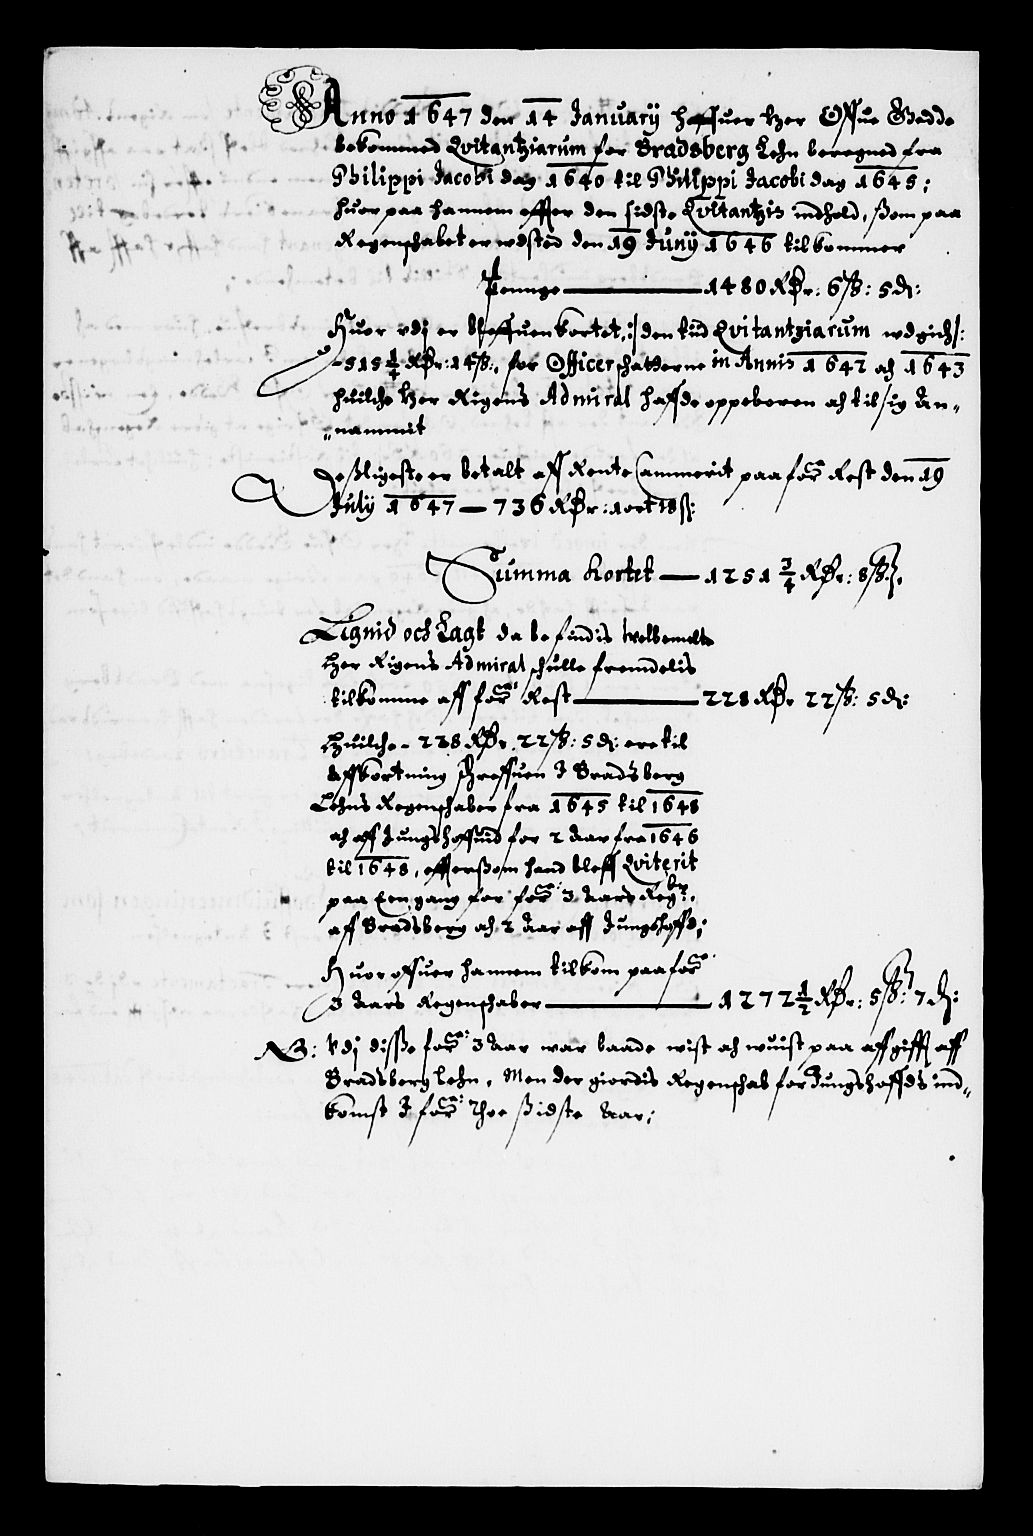 Anno 1647 den 14 January haffuer Her Offue Gedde
bekommed Qvitantziarum for Bradsberg Lehn beregned fra
Philippi Jacobi dag 1640 til Philippi Jacobi dag 1645;
huor paa hannem effter den sidste Qvitantzis indhold, ßom paa
Regenschabet er wdsted den 19 Juny 1646 tilkommer
Pennge — 1480 Rdr: 6 ß: 5 d:
Huor vdj er bleffuen kortet, :/ den tid Qvitantziarum wdgich/:
- 515 1/4 Rdr: 14 ß:, for Officerschatterne in Annis 1642 och 1643
huilche Her Rigens Admiral haffde oppeboren och til sig An-
nammit
Deßligeste er betalt aff Rente Cammerit paa for: Rest den 19
July 1647 — 736 Rdr: 1 ort 18 ß:
Summa Kortet — 1251 3/4 Rdr: 8 ß.
Lignid och Lagt da befindis Welbemelte
Her Rigens Admiral schulle fremdelis
tilkomme aff for: Rest — 228 Rdr 22 ß: 5 d:
Huilche - 228 Rdr. 22 ß: 5 d: ere til
Affkortning schreffuen J Bradsberg
Lehns Regenschaber fra 1645 til 1648
och aff Jungshoffuid for 2 Aar fra 1646
til 1648, effterßom hand bleff Qviterit
paa Een gang for for: 3 Aars Regr.
aff Bradsberg och 2 Aar aff Jungshoffd;
Huor offuer hannem tilkom paa for:
3 Aars Regenschaber — 1272 1/2 Rdr: 5 ß: 7 d:
NB: Vdj disße for: 3 Aar war baade wist och wuist paa affgifft aff
Bradsberg Lehn, Men der giordis Regenschab for Jungshoffds ind-
komst J for: Thoe ßidste Aar;